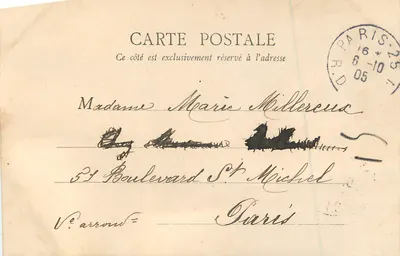 CARTE POSTALE
Ce côté est exclusivement réservé à l'adresse
PARIS·25
6 -10
05
R.D
Madame Marie Millereux
51 Boulevard St Michel
Ve arrondt
Paris